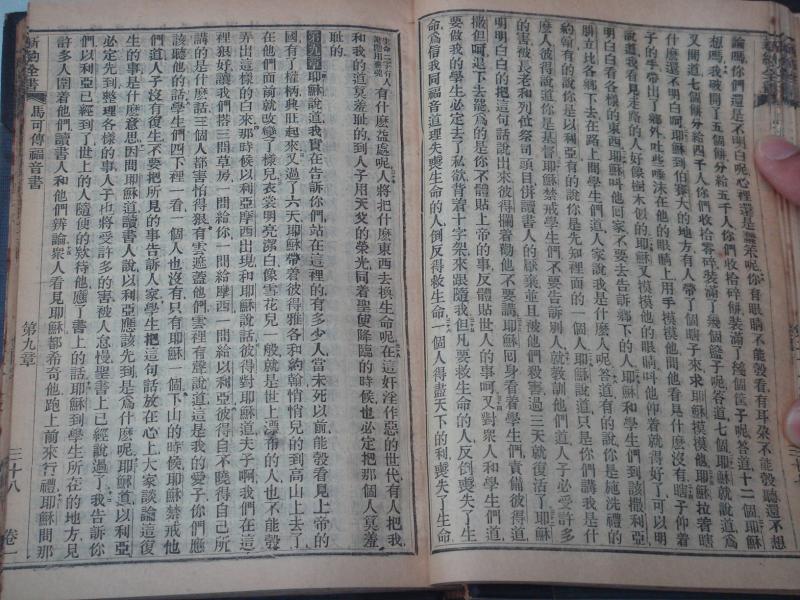 論嗎你們還是不明白呢心裡還是糊塗呢你有眼睛不能彀看有耳朵不能彀聽還不想
想嗎我破開了五個餅分給五千人你們收拾碎餅裝滿了幾個筐子呢答道十二個耶穌
又問道七個餅分給四千人你們收拾零碎裝滿了幾個筐子呢答道七個耶穌就說道爲
什麽還不明白呵耶穌到伯賽大的地方有人帶了個瞎子來求耶穌摸他耶穌拉着瞎
子的手帶出了鄉外吐些唾沫在他的眼睛上用手摸摸他問他看見什麽沒有瞎子仰着
說道我看見走路的人好像樹木似的耶穌又摸摸他的眼睛叫他仰着就得好了可以明
明白白看各樣的東西耶穌叫他回家不要去告訴鄉下的人耶穌和學生們到該撒利亞
腓立比各鄉下去在路上問學生們道人家說我是什麽人呢答道有的說你是施洗禮的
約翰有的說你是以利亞有的說你是先知裡面的一個人耶穌說道只是你們講我是什
麽人彼得說道你是基督耶穌禁戒學生們不要告訴別人就教訓他們道人子必受許多
的害被長老和列位祭司頭目併讀書人的厭棄並且被他們殺害過三天就復活了耶穌
明明白白的把這句話說出來彼得攔着勸他不要講耶穌回身看着學生們責備彼得道
撒但呵退下去罷爲的是你不體貼上帝的事反體貼世人的事呵又對衆人和學生們說
要做我的學生必定去了私欲背着十字架來跟隨我但凡要救生命的人反喪失了生
命爲信我同福音道理失喪生命的人倒反得救生命一個人得盡天下的利喪失了生命
有什麽益處呢人將把什麽東西去換生命呢在這奸淫作惡的世代有人把我
和我的道莫羞恥的到人子用天父的榮光同着聖使降臨的時候也必定把那個人莫羞
恥的
第九章耶穌說道我實在告訴你們站在這裡的有多少人當未死以前能彀看見上帝的
國有了權柄興旺起來又過了六天耶穌帶着彼得雅各和約翰悄悄兒的到高山上去了
在他們面前就改變了樣兒衣裳明亮潔白像雪花兒一般就是世上漂布的人也不能彀
弄出這樣的白來那時候以利亞摩西出現和耶穌說話彼得對耶穌道夫子啊我們在這
裡狠好讓我們搭三間草房一間給你一間給摩西一間給以利亞彼得自不曉得自己所
講的是什麽話三個人都害怕得狠有雲遮蓋他們雲裡有聲說道這是我的愛子你們應
該聽他的話學生們四下裡一看一個人也沒有只有耶穌一個下山的時候耶穌禁戒他
們道人子沒有復生不要把所見的事告訴人家學生把這句話放在心上大家談論這復
生的事是什麽意思因問耶穌道讀書人說以利亞應該先到是爲什麽呢耶穌道以利亞
必定先到整理各樣的事人子也將受許多的害被人怠慢聖書上已經說過了我告訴你
們以利亞已經到了世上的人隨便的欵待他應了書上的話耶穌到學生所在的地方見
許多人圍着他們讀書人和他們辨論衆人看見耶穌都希奇他跑上前來行禮耶穌問那
新約全書
馬可傳福音書
第九章
三十八
卷一